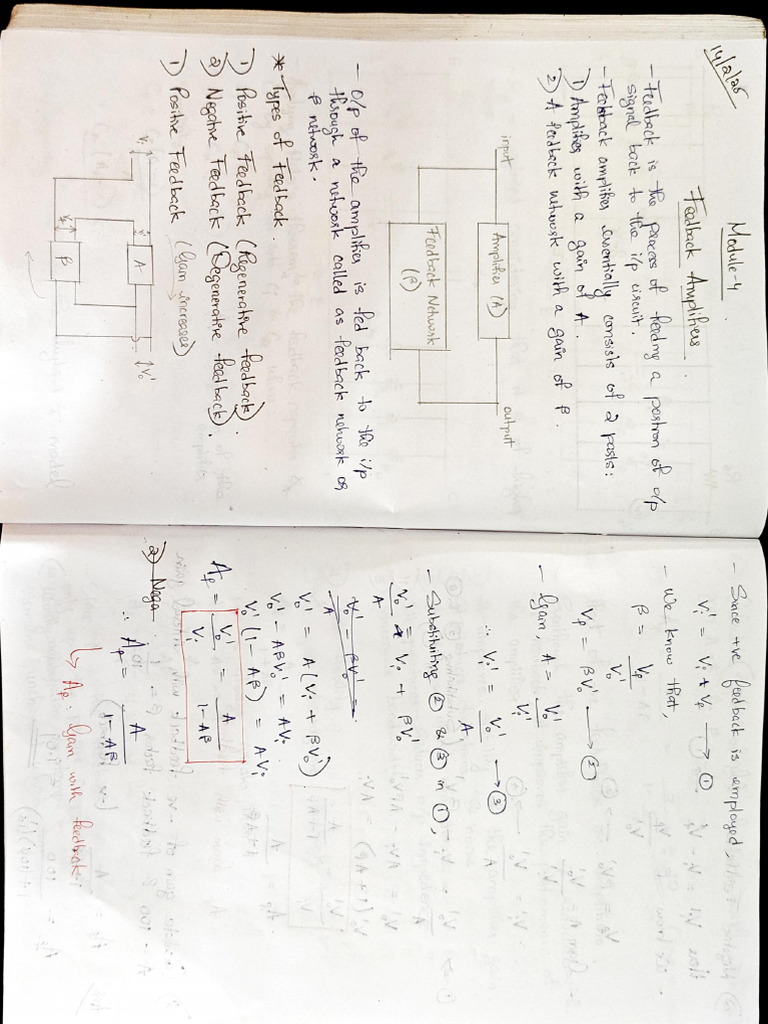 14/2/26
Module-4
Feedback Amplifiers
- Feedback is the process of feeding a portion of o/p
signal back to the i/p circuit.
- Feedback amplifier essentially consists of 2 parts:
1) Amplifier with a gain of A.
2) A feedback network with a gain of β.
input
Amplifier (A)
output
Feedback Network
(β)
- O/p of the amplifier is fed back to the i/p
through a network called as feedback network or
β network.
* Types of Feedback.
1) Positive Feedback (Regenerative feedback).
2) Negative Feedback (Degenerative feedback).
1) Positive Feedback (Gain increases)
Vi
A
Vo'
β
- Since +ve feedback is employed,
Vi' = Vi + Vf → ①
- We know that,
β = Vf / Vo'
Vf = βVo' → ②
- Gain, A = Vo' / Vi'
∴ Vi' = Vo' / A → ③
- Substituting ② & ③ in ①,
Vo' / A = Vi + βVo'
Vo' / A - βVo' =
Vo' = A(Vi + βVo')
Vo' - AβVo' = AVi
Vo'(1 - Aβ) = AVi
Af = Vo' / Vi = A / 1-Aβ
2) Nega
∴ Af = A / 1-Aβ
↳ Af: Gain with feedback